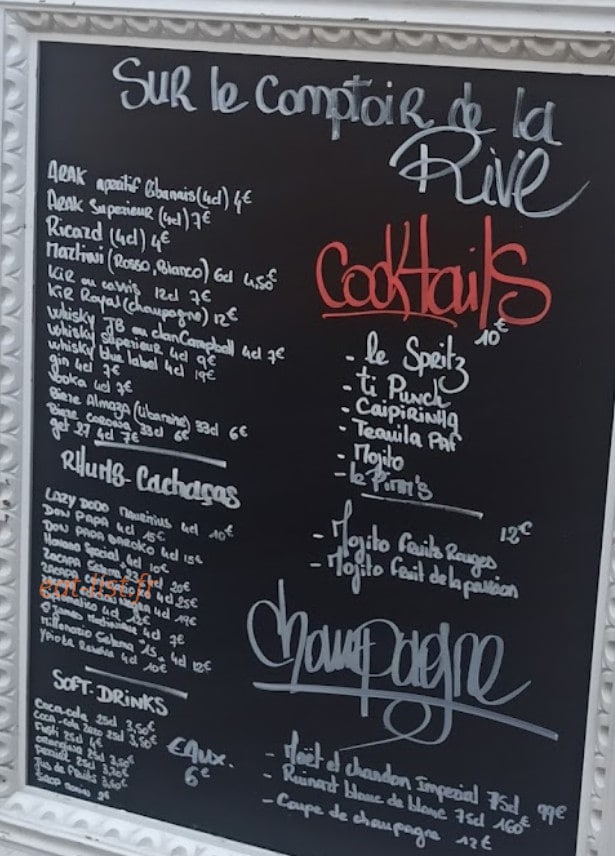 SUR le Comptoir de la
Rive
ARAK apéritif libanais (4cl) 4€
ARAK Superieur (4cl) 7€
Ricard (4cl) 4€
Martini (Rosso, Bianco) 6cl 4,50€
Kir au cassis 12cl 7€
Kir Royal (champagne) 12€
Whisky JB ou clan Campbell 4cl 7€
Whisky superieur 4cl 9€
whisky blue label 4cl 19€
gin 4cl 7€
Vodka 4cl 7€
Biere Almaza (libanaise) 33cl 6€
Biere corona 33cl 6€
get 27 4cl 7€
RHUMS-Cachaças
LAZY DODO Mauritius 4cl 10€
DON PAPA 4cl 15€
DON PAPA BAROKO 4cl 15€
Havana Special 4cl 10€
ZACAPA 20€
4cl 25€
4cl 19€
4cl 12€
St James 4cl 7€
Millenario Solera 15 4cl 12€
Ypioca 4cl 10€
SOFT-DRINKS
Coca-cola 25cl 3,50€
Coca-cola Zero 25cl 3,50€
25cl 4€
Orangina 25cl 3,50€
Perrier 25cl 3,20€
Jus de Fruits 3,60€
Sirop
EAUX.
6€
Cocktails
10€
- le Spritz
- ti Punch
- CAIPIRINHA
- Tequila PAF
- Mojito
- le Pimm's
12€
- Mojito fruits Rouges
- Mojito fruit de la passion
Champagne
- Moët et chandon Imperial 75cl 99€
- Ruinart blanc de blanc 75cl 160€
- Coupe de champagne 12€
eat-list.fr